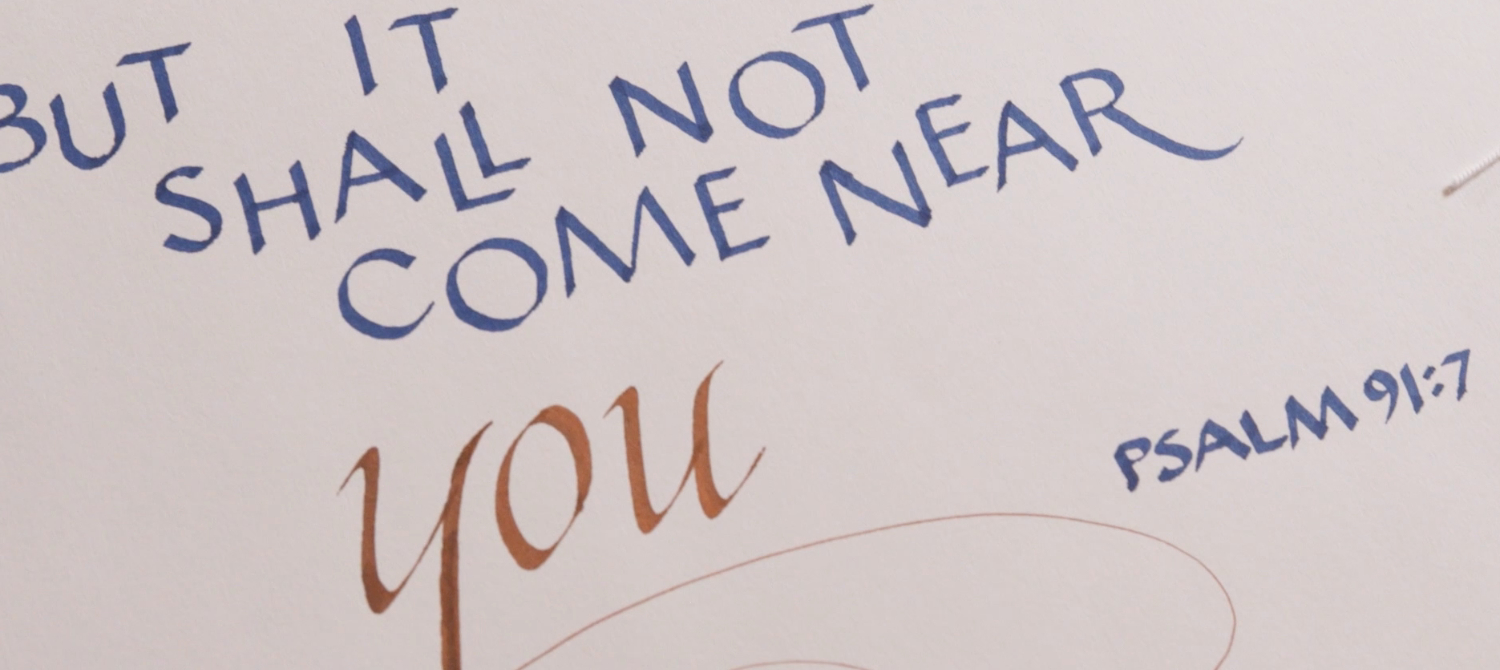 BUT IT
SHALL NOT
COME NEAR
you
PSALM 91:7